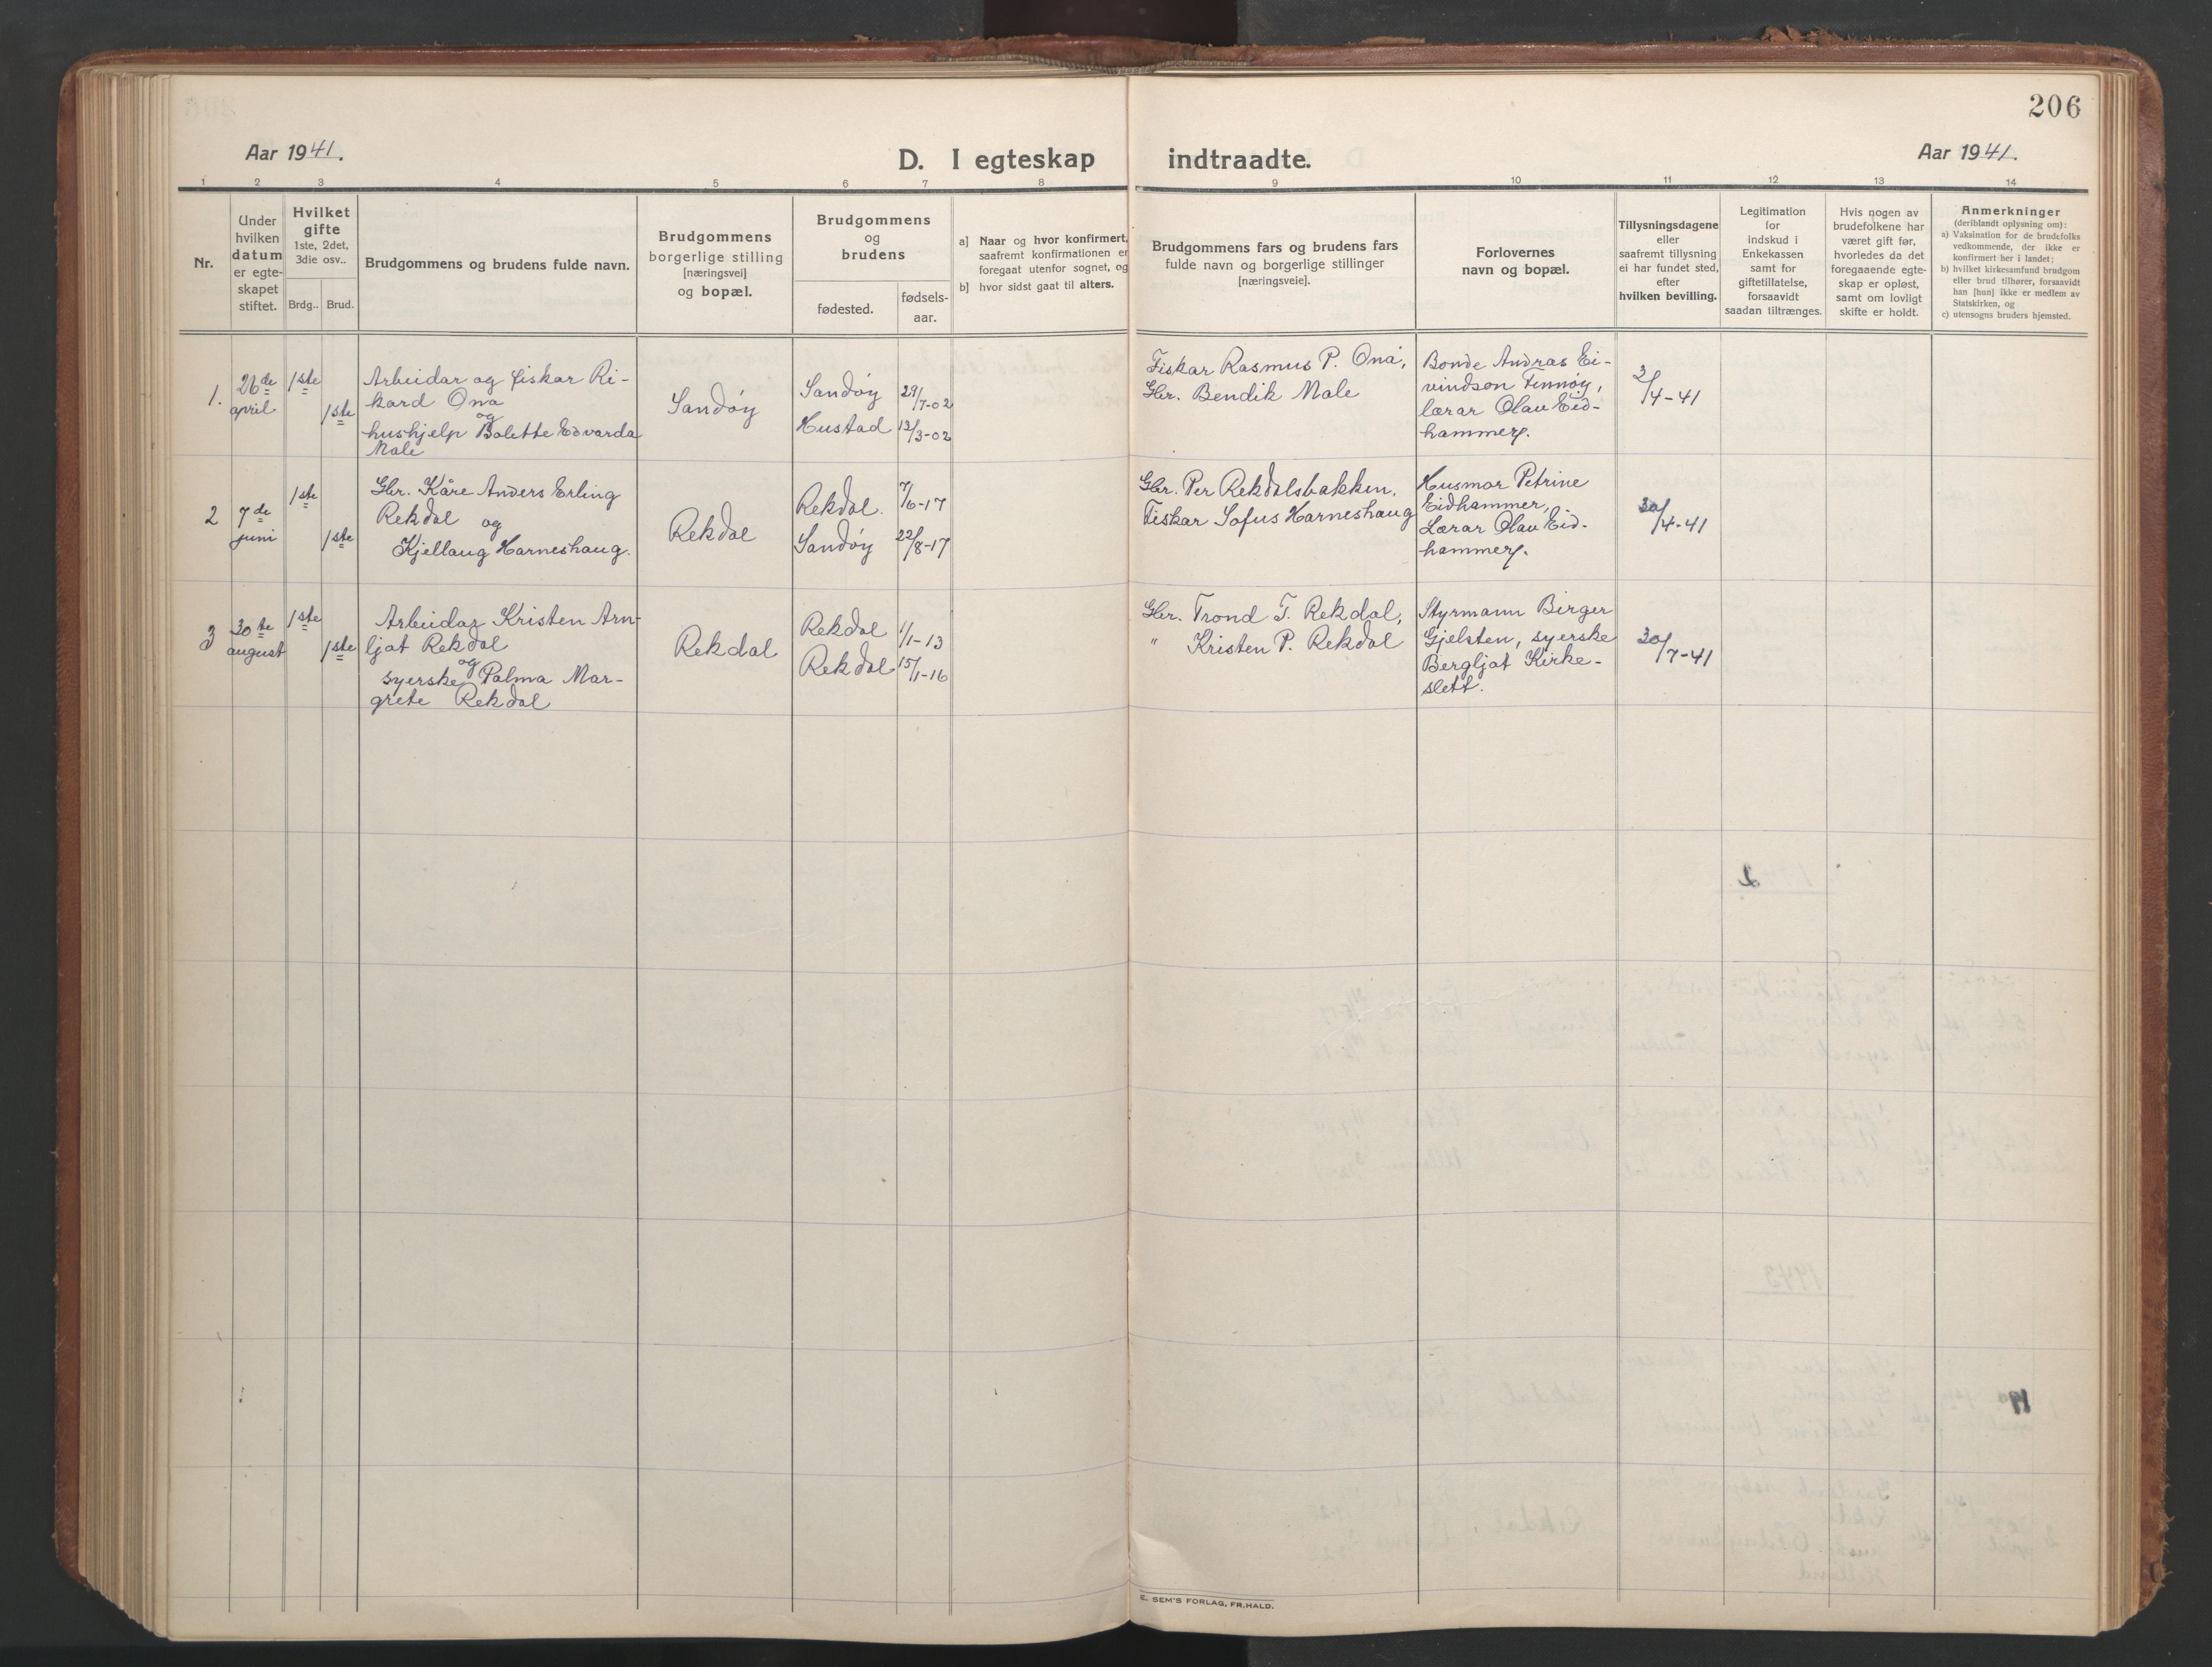 206
Aar 1941.
D. I egteskap indtraadte.
Aar 1941.
1 2 3 4 5 6 7 8 9 10 11 12 13 14
Nr.
Under
hvilken
datum
er egte-
skapet
stiftet.
Hvilket
gifte
1ste, 2det,
3die osv..
Brdg.. Brud.
Brudgommens og brudens fulde navn.
Brudgommens
borgerlige stilling
[næringsvei]
og bopæl.
Brudgommens
og
brudens
fødested.
fødsels-
aar.
a] Naar og hvor konfirmert,
saafremt konfirmationen er
foregaat utenfor sognet, og
b] hvor sidst gaat til alters.
Brudgommens fars og brudens fars
fulde navn og borgerlige stillinger
[næringsveie].
Forlovernes
navn og bopæl.
Tillysningsdagene
eller
saafremt tillysning
ei har fundet sted,
efter
hvilken bevilling.
Legitimation
for
indskud i
Enkekassen
samt for
giftetillatelse,
forsaavidt
saadan tiltrænges.
Hvis nogen av
brudefolkene har
været gift før,
hvorledes da det
foregaaende egte-
skap er opløst,
samt om lovligt
skifte er holdt.
Anmerkninger
(deriblandt oplysning om):
a) Vaksination for de brudefolks
vedkommende, der ikke er
konfirmert her i landet;
b) hvilket kirkesamfund brudgom
eller brud tilhører, forsaavidt
han [hun] ikke er medlem av
Statskirken, og
c) utensogns bruders hjemsted.
1.
26de
april
1ste
1ste
Arbeidar og fiskar Ri-
kard Ona
og
hushjelp Bolette Edvarda
Male
Sandøy
Sandøy 29/7-02
Hustad 13/3-02
Fiskar Rasmus P. Ona,
Gbr. Bendik Male
Bonde Andras Ei-
vindson Finnøy,
lærar Olav Eid-
hammer.
3/4-41
2
7de
juni
1ste
1ste
Gbr. Kåre Anders Erling
Rekdal og
Kjellaug Harneshaug.
Rekdal
Rekdal. 7/6-17
Sandøy 22/8-17
Gbr. Per Rekdalsbakken,
Fiskar Sofus Harneshaug
Husmor Petrine
Eidhammer,
Lærar Olav Eid-
hammer.
30/4-41
3
30te
august
1ste
1ste
Arbeidar Kristen Arn-
ljot Rekdal
og
syerske Palma Mar-
grete Rekdal
Rekdal
Rekdal 1/1-13
Rekdal 15/1-16
Gbr. Trond T. Rekdal,
" Kristen P. Rekdal
Styrmann Birger
Gjelsten, syerske
Bergljot Kirke-
slett.
30/7-41
E. SEM'S FORLAG, FR.HALD.